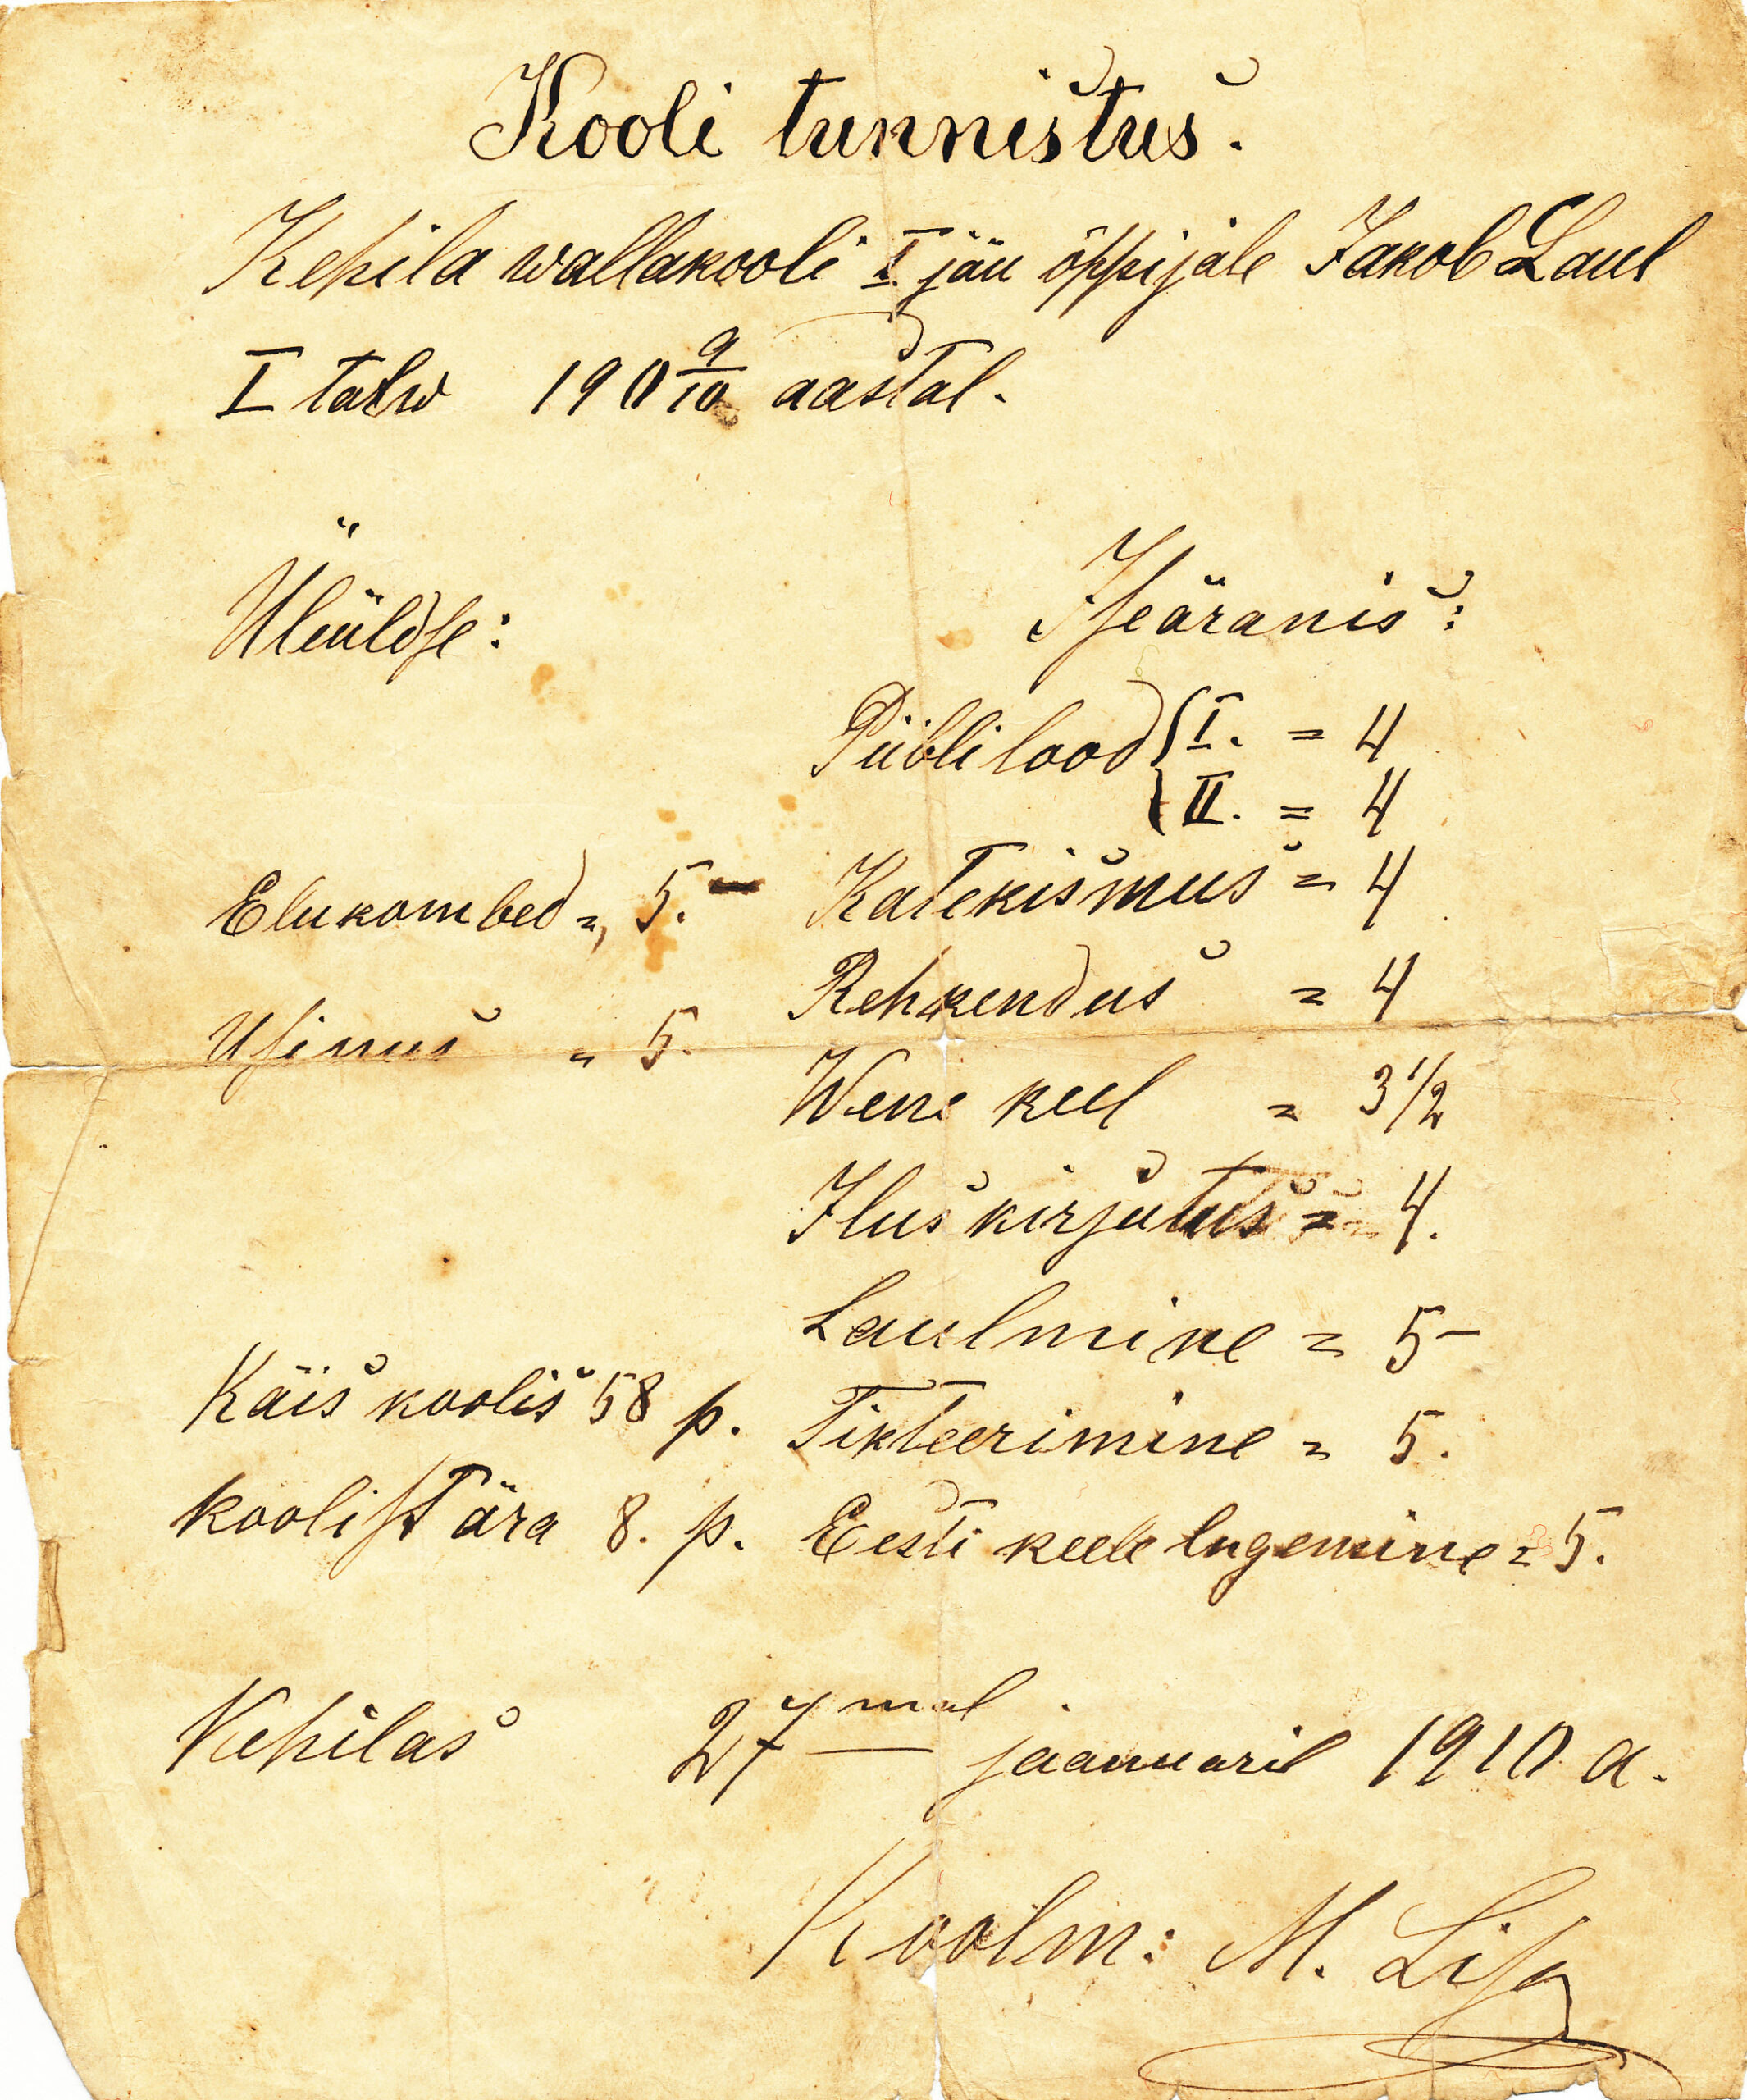 Kooli tunnistus.
Kehila wallakooli I jäu õppijale Jakob Laul
I talw 190 9/10 aastal.
Üleüldse:
Iseäranis:
Piibli lood { I. = 4
{ II. = 4
Elukombed = 5.-
Katekismus = 4
Rehkendus = 4
Usinus = 5.
Wene keel = 3 1/2
Ilus kirjutus = 4.
Laulmine = 5-
Käis koolis 58 p.
Tikteerimine = 5.
koolist ära 8. p.
Eesti keele lugemine = 5.
Kehilas 27mal jaanuaril 1910 a.
Koolm: M.